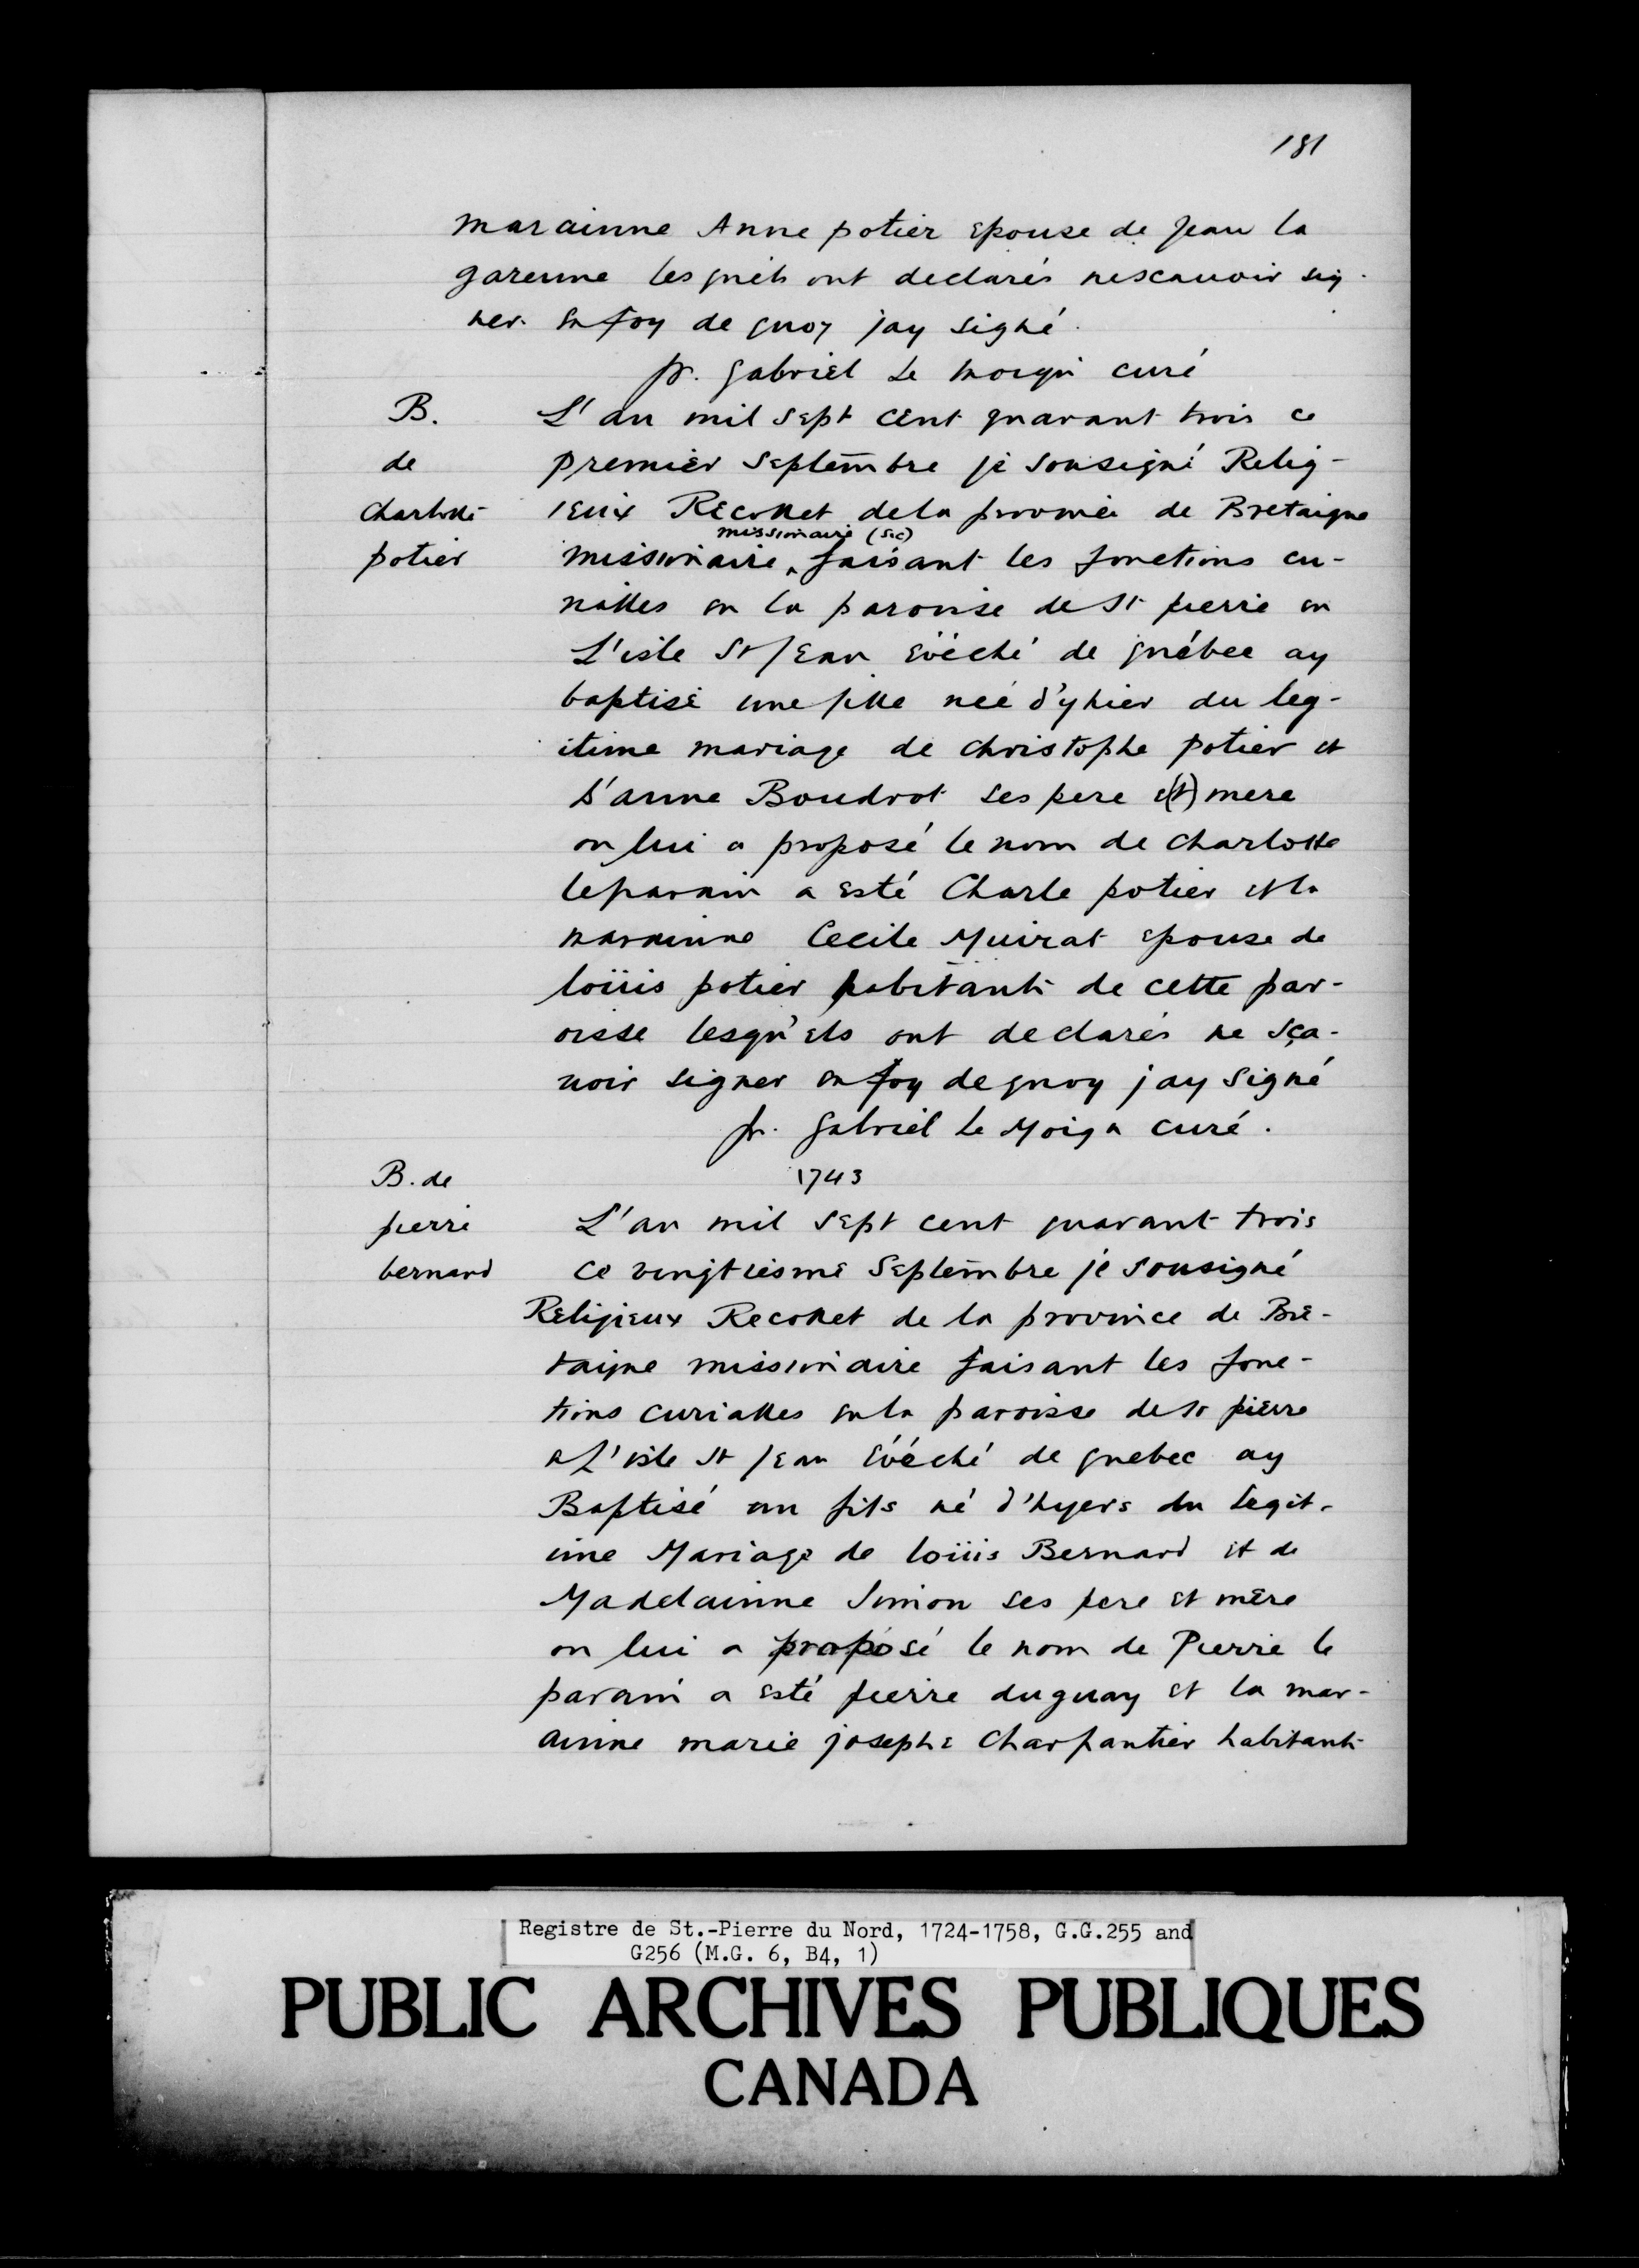 181
marainne Anne potier epouse de Jean la
garenne lesquels ont declarés nescauoir sig-
ner en foy de quoy jay signé.
fr. gabriel Le moign curé
B. de Charlotte potier
L'an mil sept cent quarant trois ce
premier septembre je sousigné Relig-
ieux Recollet dela province de Bretaigne
missionaire (sic)
missionaire faisant les fonctions cu-
rialles en la paroisse de St pierre en
L'isle St Jean evêché de québec ay
baptisé une fille née d'yhier du leg-
itime mariage de christophe potier et
d'anne Boudrot ses pere e(t) mere
on lui a proposé le nom de charlotte
leparain a esté Charle potier et la
marainne Cecile Muirat epouse de
loüis potier habitants de cette par-
oisse lesqu'els ont declarés ne sça-
uoir signer en foy dequoy jay signé
fr. gabriel le Moign curé.
B. de pierre bernard
1743
L'an mil sept cent quarant trois
ce vingtiesme Septembre je sousigné
Religieux Recollet de la province de Bre-
taigne missionaire faisant les fonc-
tions curialles en la paroisse de St pierre
a L'isle St Jean évéché de quebec ay
Baptisé un fils né d'hyers du legit-
ime Mariage de loüis Bernard et de
Madelainne Simon ses pere et mere
on lui a proposé le nom de Pierre le
parain a esté pierre duguay et la mar-
ainne marie josephe Charpantier habitants
Registre de St.-Pierre du Nord, 1724-1758, G.G.255 and
G256 (M.G. 6, B4, 1)
PUBLIC ARCHIVES PUBLIQUES
CANADA